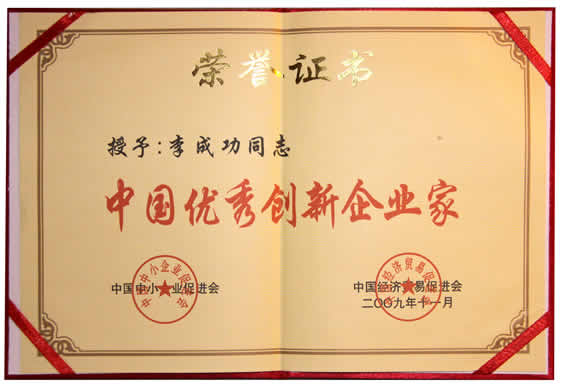 荣誉证书
授予:李成功同志
中国优秀创新企业家
中国中小企业促进会
中国经济贸易促进会
二〇〇九年十一月